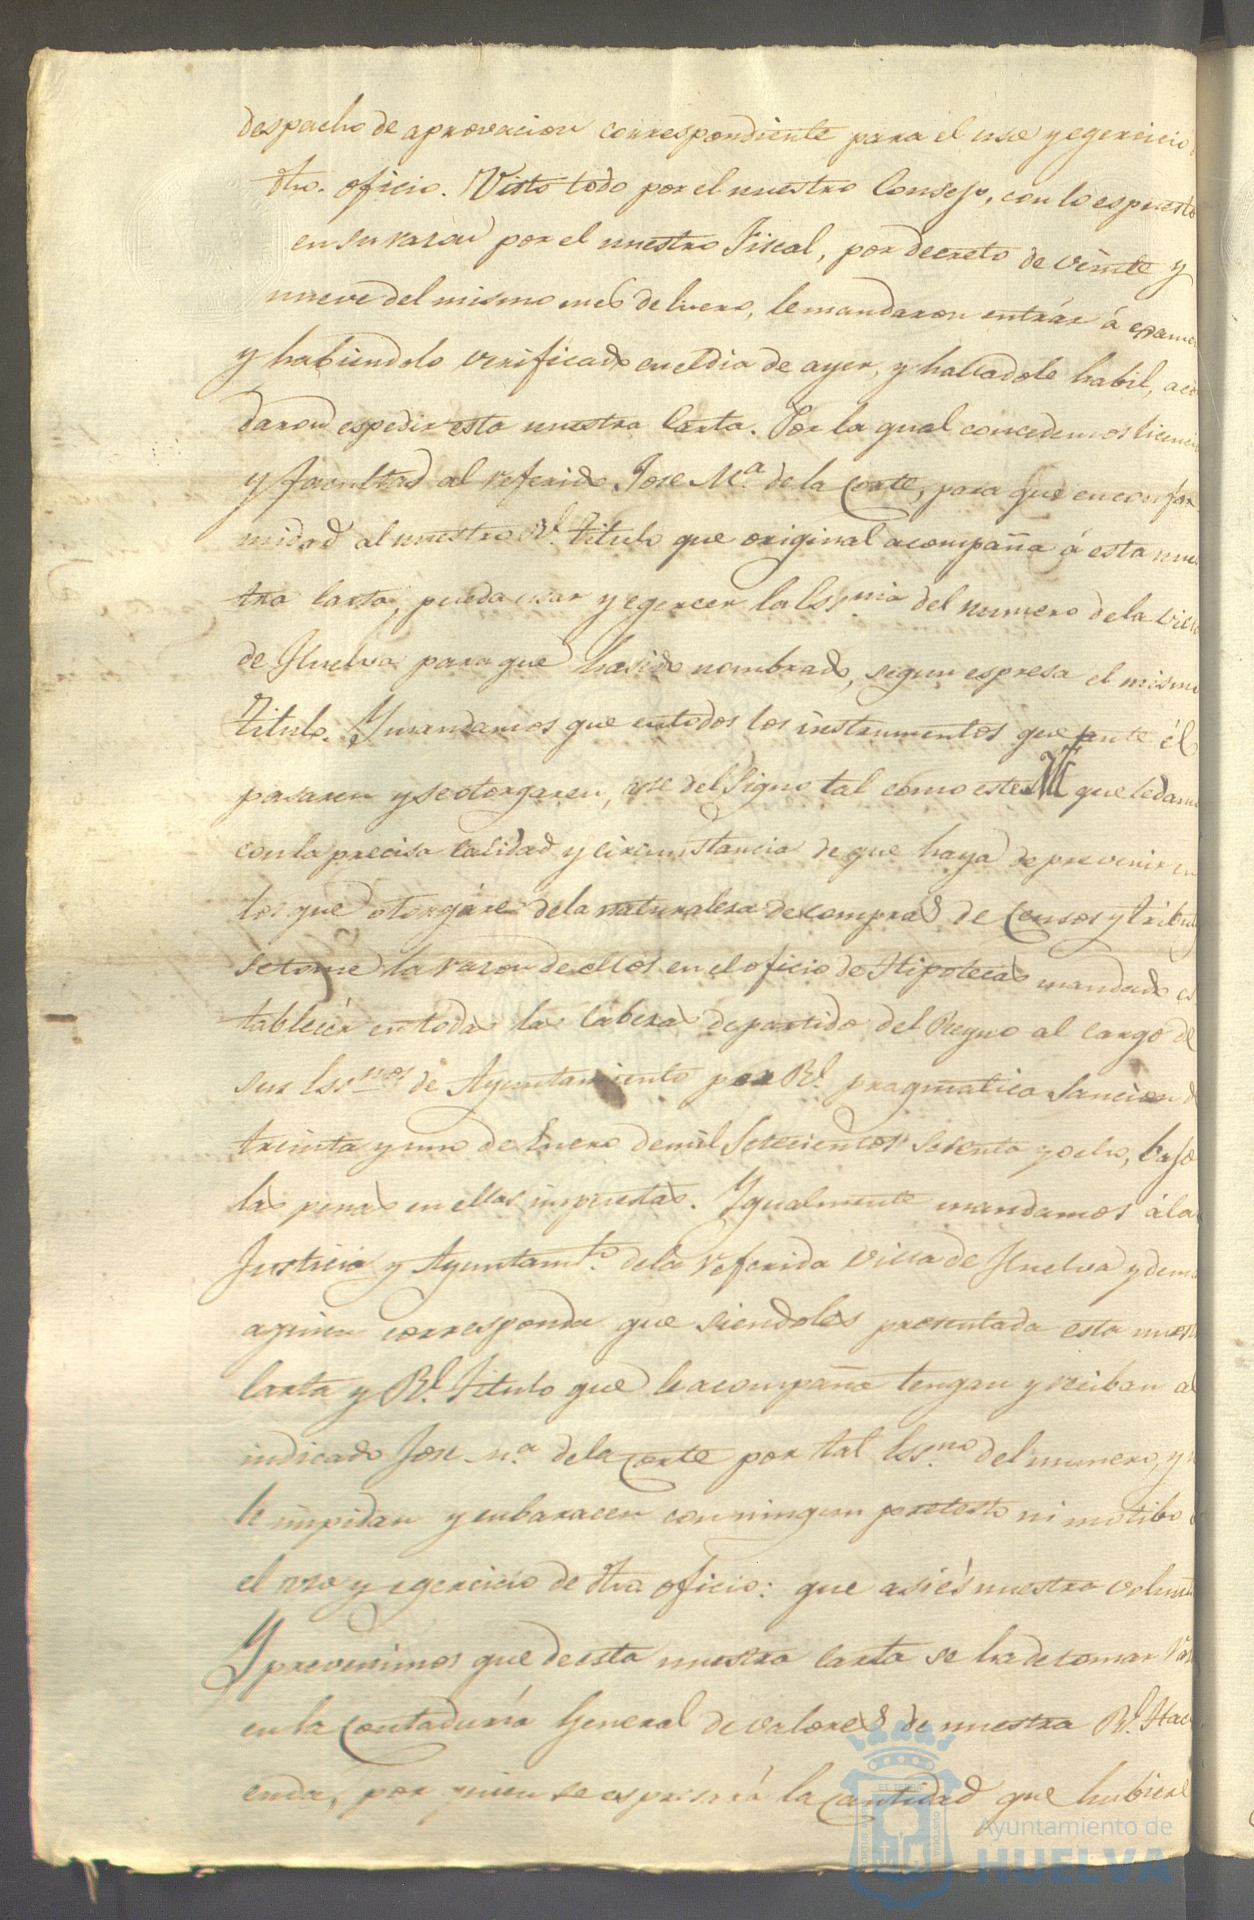 despacho de aprovacion correspondiente para el uso y egercicio
dho. oficio. Visto todo por el nuestro Consejo, con lo espuesto
en su razon por el nuestro Fiscal, por decreto de veinte y
nueve del mismo mes de Enero, le mandaron entrár á examen
y habiendolo verificado en el dia de ayer, y halladole habil, acor
daron espedir esta nuestra Carta. Por la qual concedemos licencia
y facultad al referido Jose M.ª de la Corte, para que en confor
midad al nuestro R.l titulo que original acompaña á esta nues
tra Carta, pueda usar y egercer la Essnia del numero de la villa
de Huelva para que ha sido nombrado, segun espresa el mismo
titulo. Y mandamos que en todos los instrumentos que ante él
pasaren y se otorgaren, use del Signo tal como este que le damos
con la precisa calidad y circunstancia de que haya de prevenir en
los que otorgáre de la naturaleza de compras de Censos y tributos
se tome la razon de ellos en el oficio de Hipotecas mandado es
tablecér en todas las Cabezas de partido del Reyno al cargo de
sus Essnos de Ayuntamiento por R.l pragmatica Sancion de
treinta y uno de Enero de mil Setecientos sesenta y ocho, bajo
las penas en ellas impuestas. Igualmente mandamos á la
Justicia y Ayuntamto. de la referida villa de Huelva y demas
a quien corresponda que siendoles presentada esta nuestra
Carta y R.l Titulo que le acompaña tengan y reciban al
indicado Jose M.ª de la Corte por tal Essno del numero, y no
le impidan y embaracen con ningun pretesto ni motibo
el uso y egercicio de dho oficio: que asi és nuestra volunt
Y prevenimos que de esta nuestra Carta se ha de tomar raz
en la Contaduría General de valores de nuestra R.l Haci
enda, por quien se espresará la cantidad que hubiere
Ayuntamiento de
HUELVA